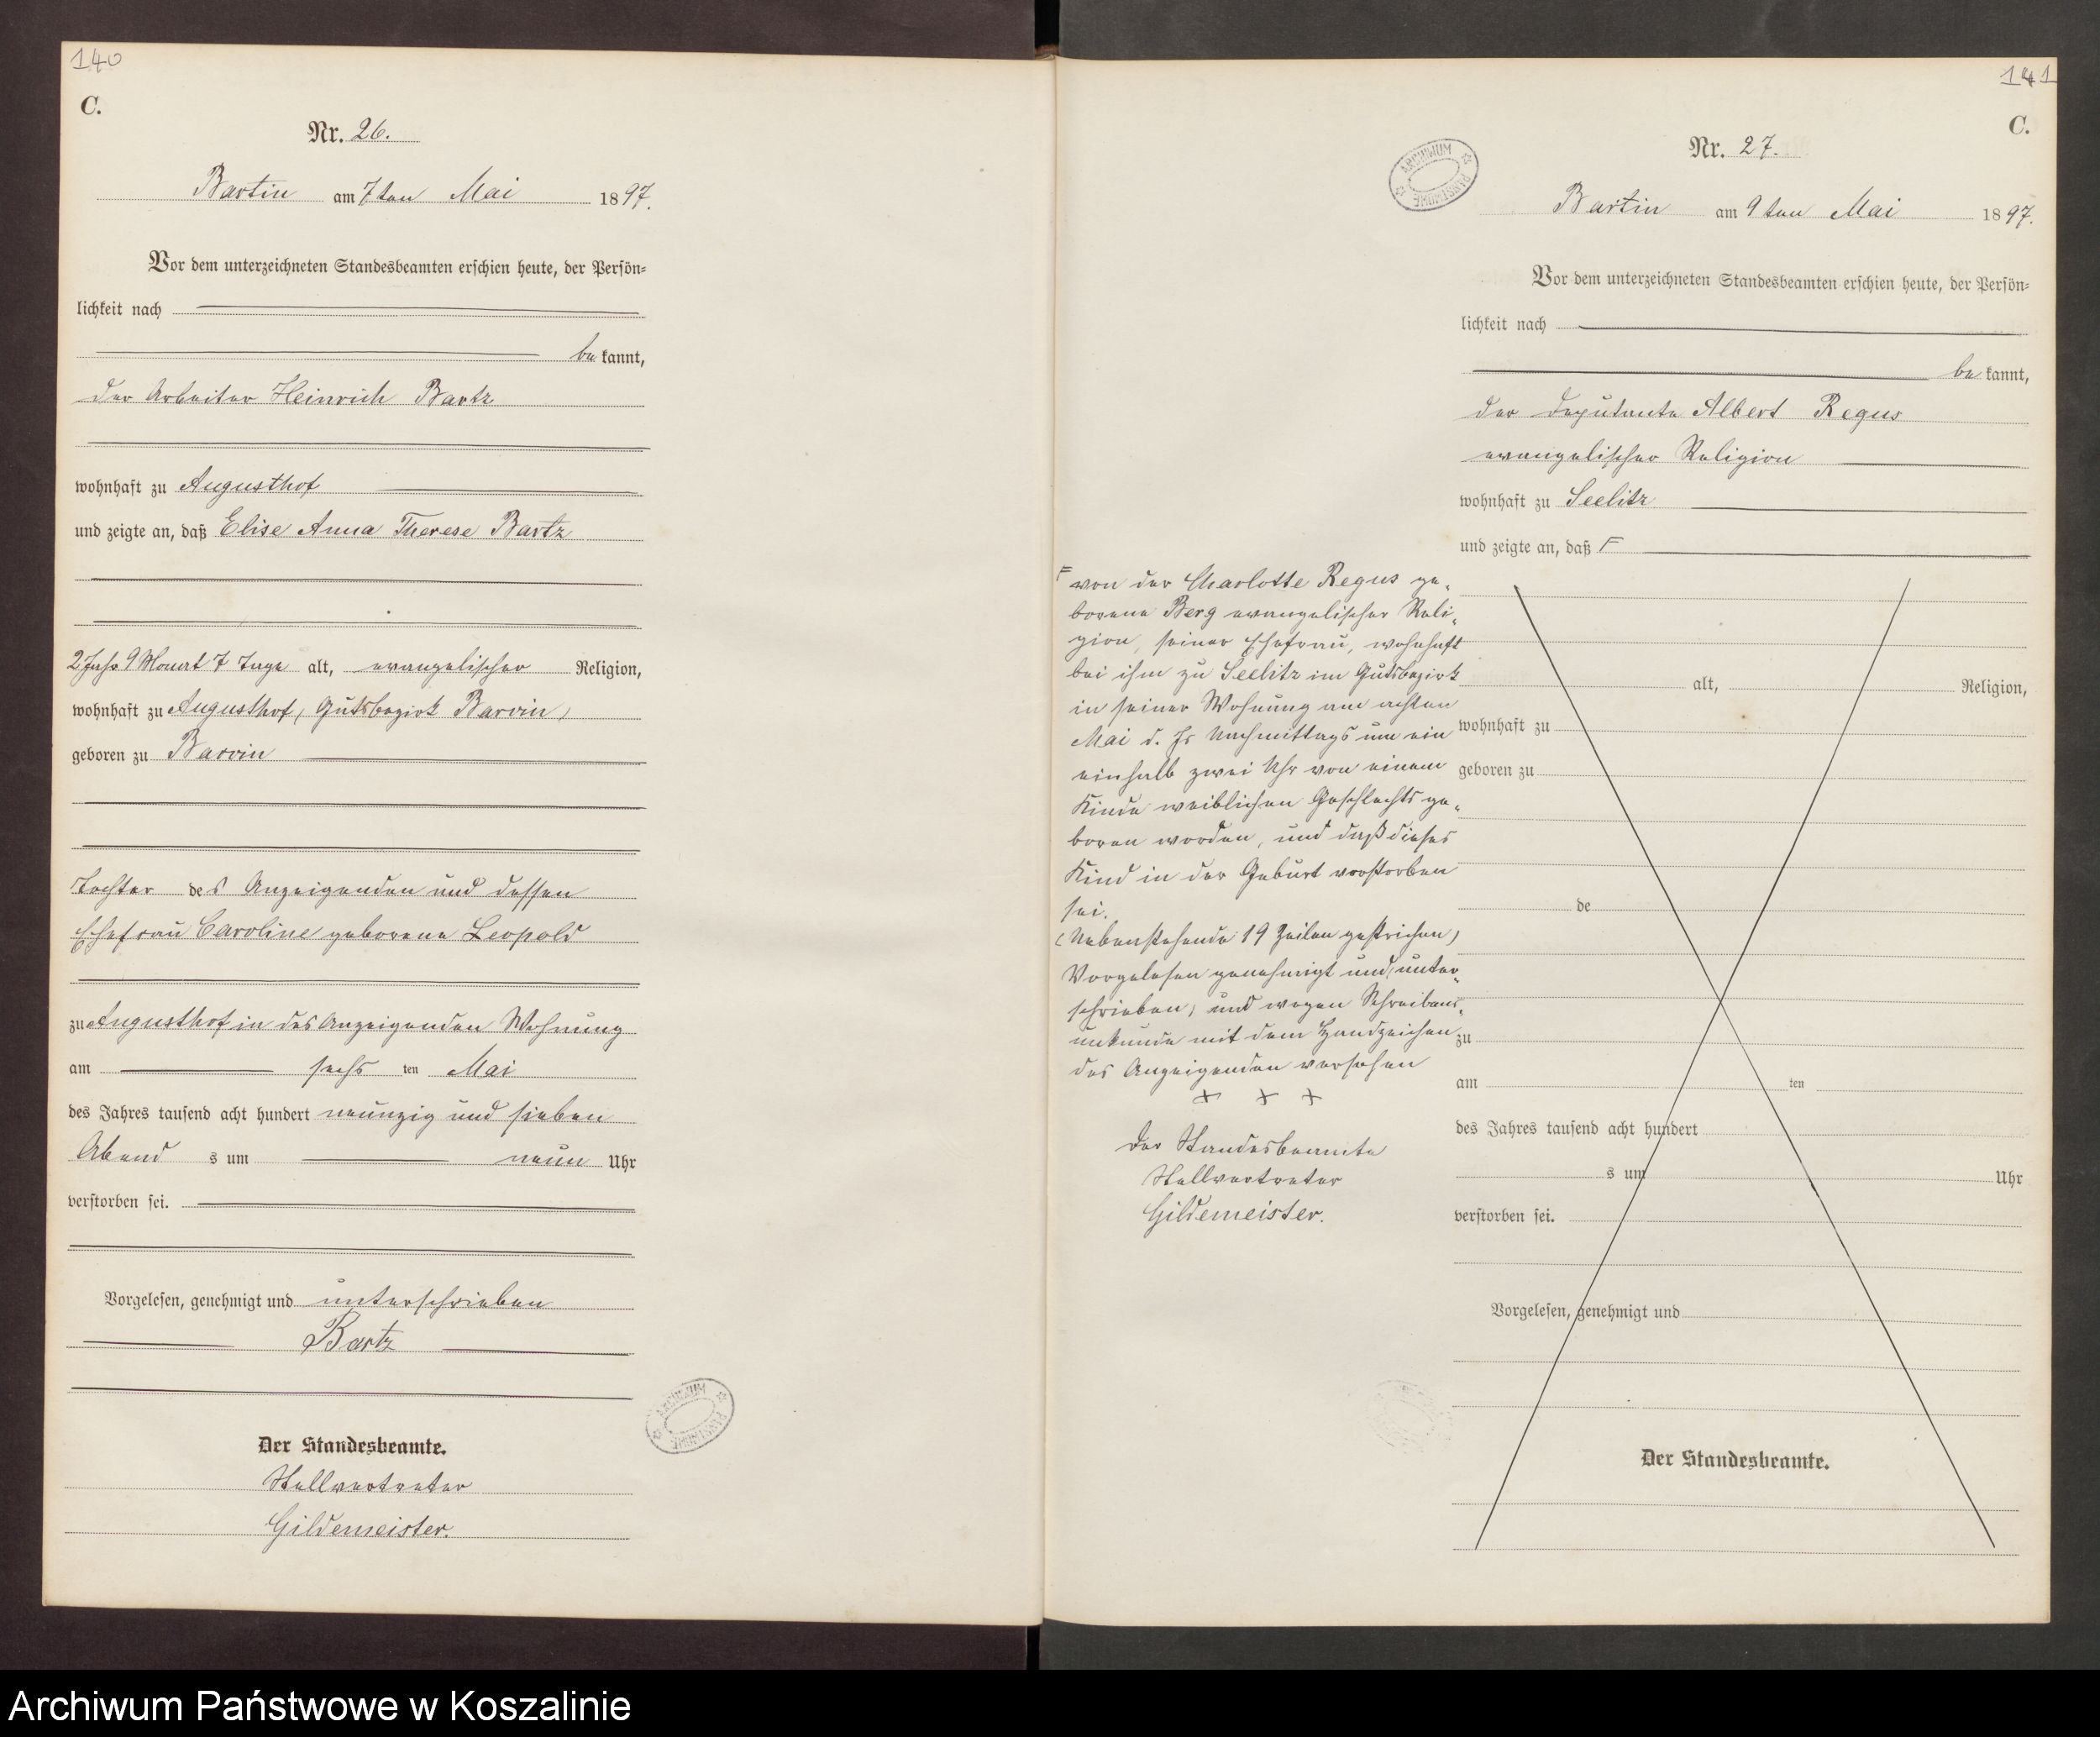 140
C.
Nr. 26.
Bartin am 7ten Mai 1897.
Vor dem unterzeichneten Standesbeamten erschien heute, der Persön-
lichkeit nach
be kannt,
der Arbeiter Heinrich Bartz
wohnhaft zu Augusthof
und zeigte an, daß Elise Anna Therese Bartz
2 Jahr 9 Monat 7 Tage alt, evangelischer Religion,
wohnhaft zu Augusthof, Gutsbezirk Barvin,
geboren zu Barvin
Tochter des Anzeigenden und dessen
Ehefrau Caroline geborene Leopold
zu Augusthof in des Anzeigenden Wohnung
am sechs ten Mai
des Jahres tausend acht hundert neunzig und sieben
Abend s um neun Uhr
verstorben sei.
Vorgelesen, genehmigt und unterschrieben
Bartz
Der Standesbeamte.
Stellvertreter
Gildemeister.
ARCHIWUM PAŃSTWOWE
141
C.
ARCHIWUM PAŃSTWOWE
Nr. 27.
Bartin am 9ten Mai 1897.
Vor dem unterzeichneten Standesbeamten erschien heute, der Persön-
lichkeit nach
be kannt,
der Deputante Albert Regus
evangelischer Religion
wohnhaft zu Seelitz
und zeigte an, daß F
F von der Charlotte Regus ge-
borene Berg evangelischer Reli-
gion, seiner Ehefrau, wohnhaft
bei ihm zu Seelitz im Gutsbezirk
in seiner Wohnung am achten
Mai d. Js Nachmittags um ein
einhalb zwei Uhr von einem
Kinde weiblichen Geschlechts ge-
boren worden, und daß dieses
Kind in der Geburt verstorben
sei.
(Nebenstehende 19 Zeilen gestrichen)
Vorgelesen genehmigt und unter-
schrieben, und wegen Schreibens-
unkunde mit dem Handzeichen
des Anzeigenden versehen
+ + +
Der Standesbeamte
Stellvertreter
Gildemeister.
alt, Religion,
wohnhaft zu
geboren zu
de
zu
am ten
des Jahres tausend acht hundert
s um Uhr
verstorben sei.
Vorgelesen, genehmigt und
Der Standesbeamte.
Archiwum Państwowe w Koszalinie